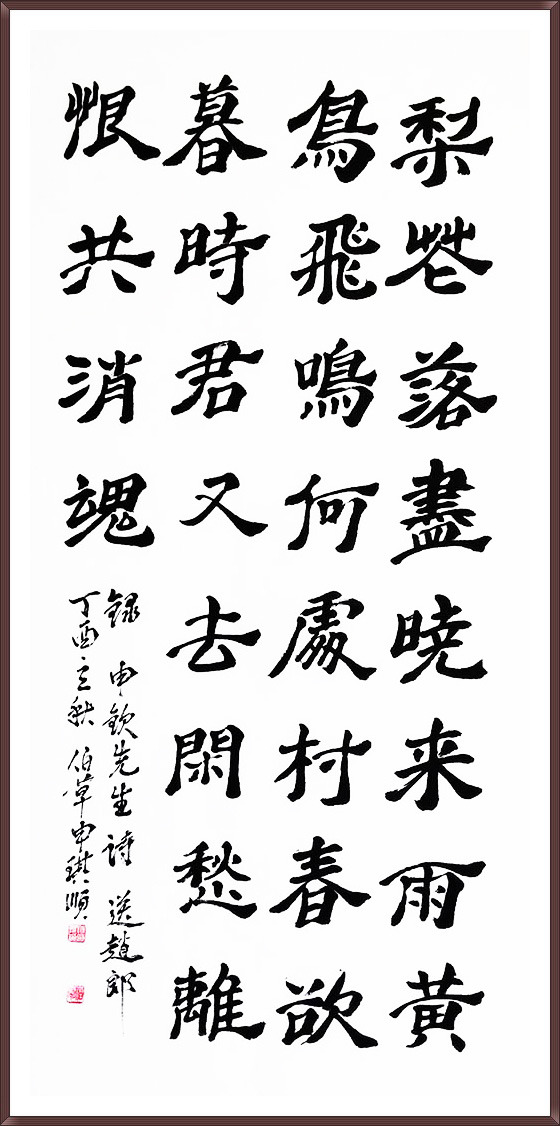 梨花落盡暁来雨黄
鳥飛鳴何處村春欲
暮時君又去閑愁離
恨共消魂
録 申欽先生詩 送趙郎
丁酉立秋 伯草申琪順